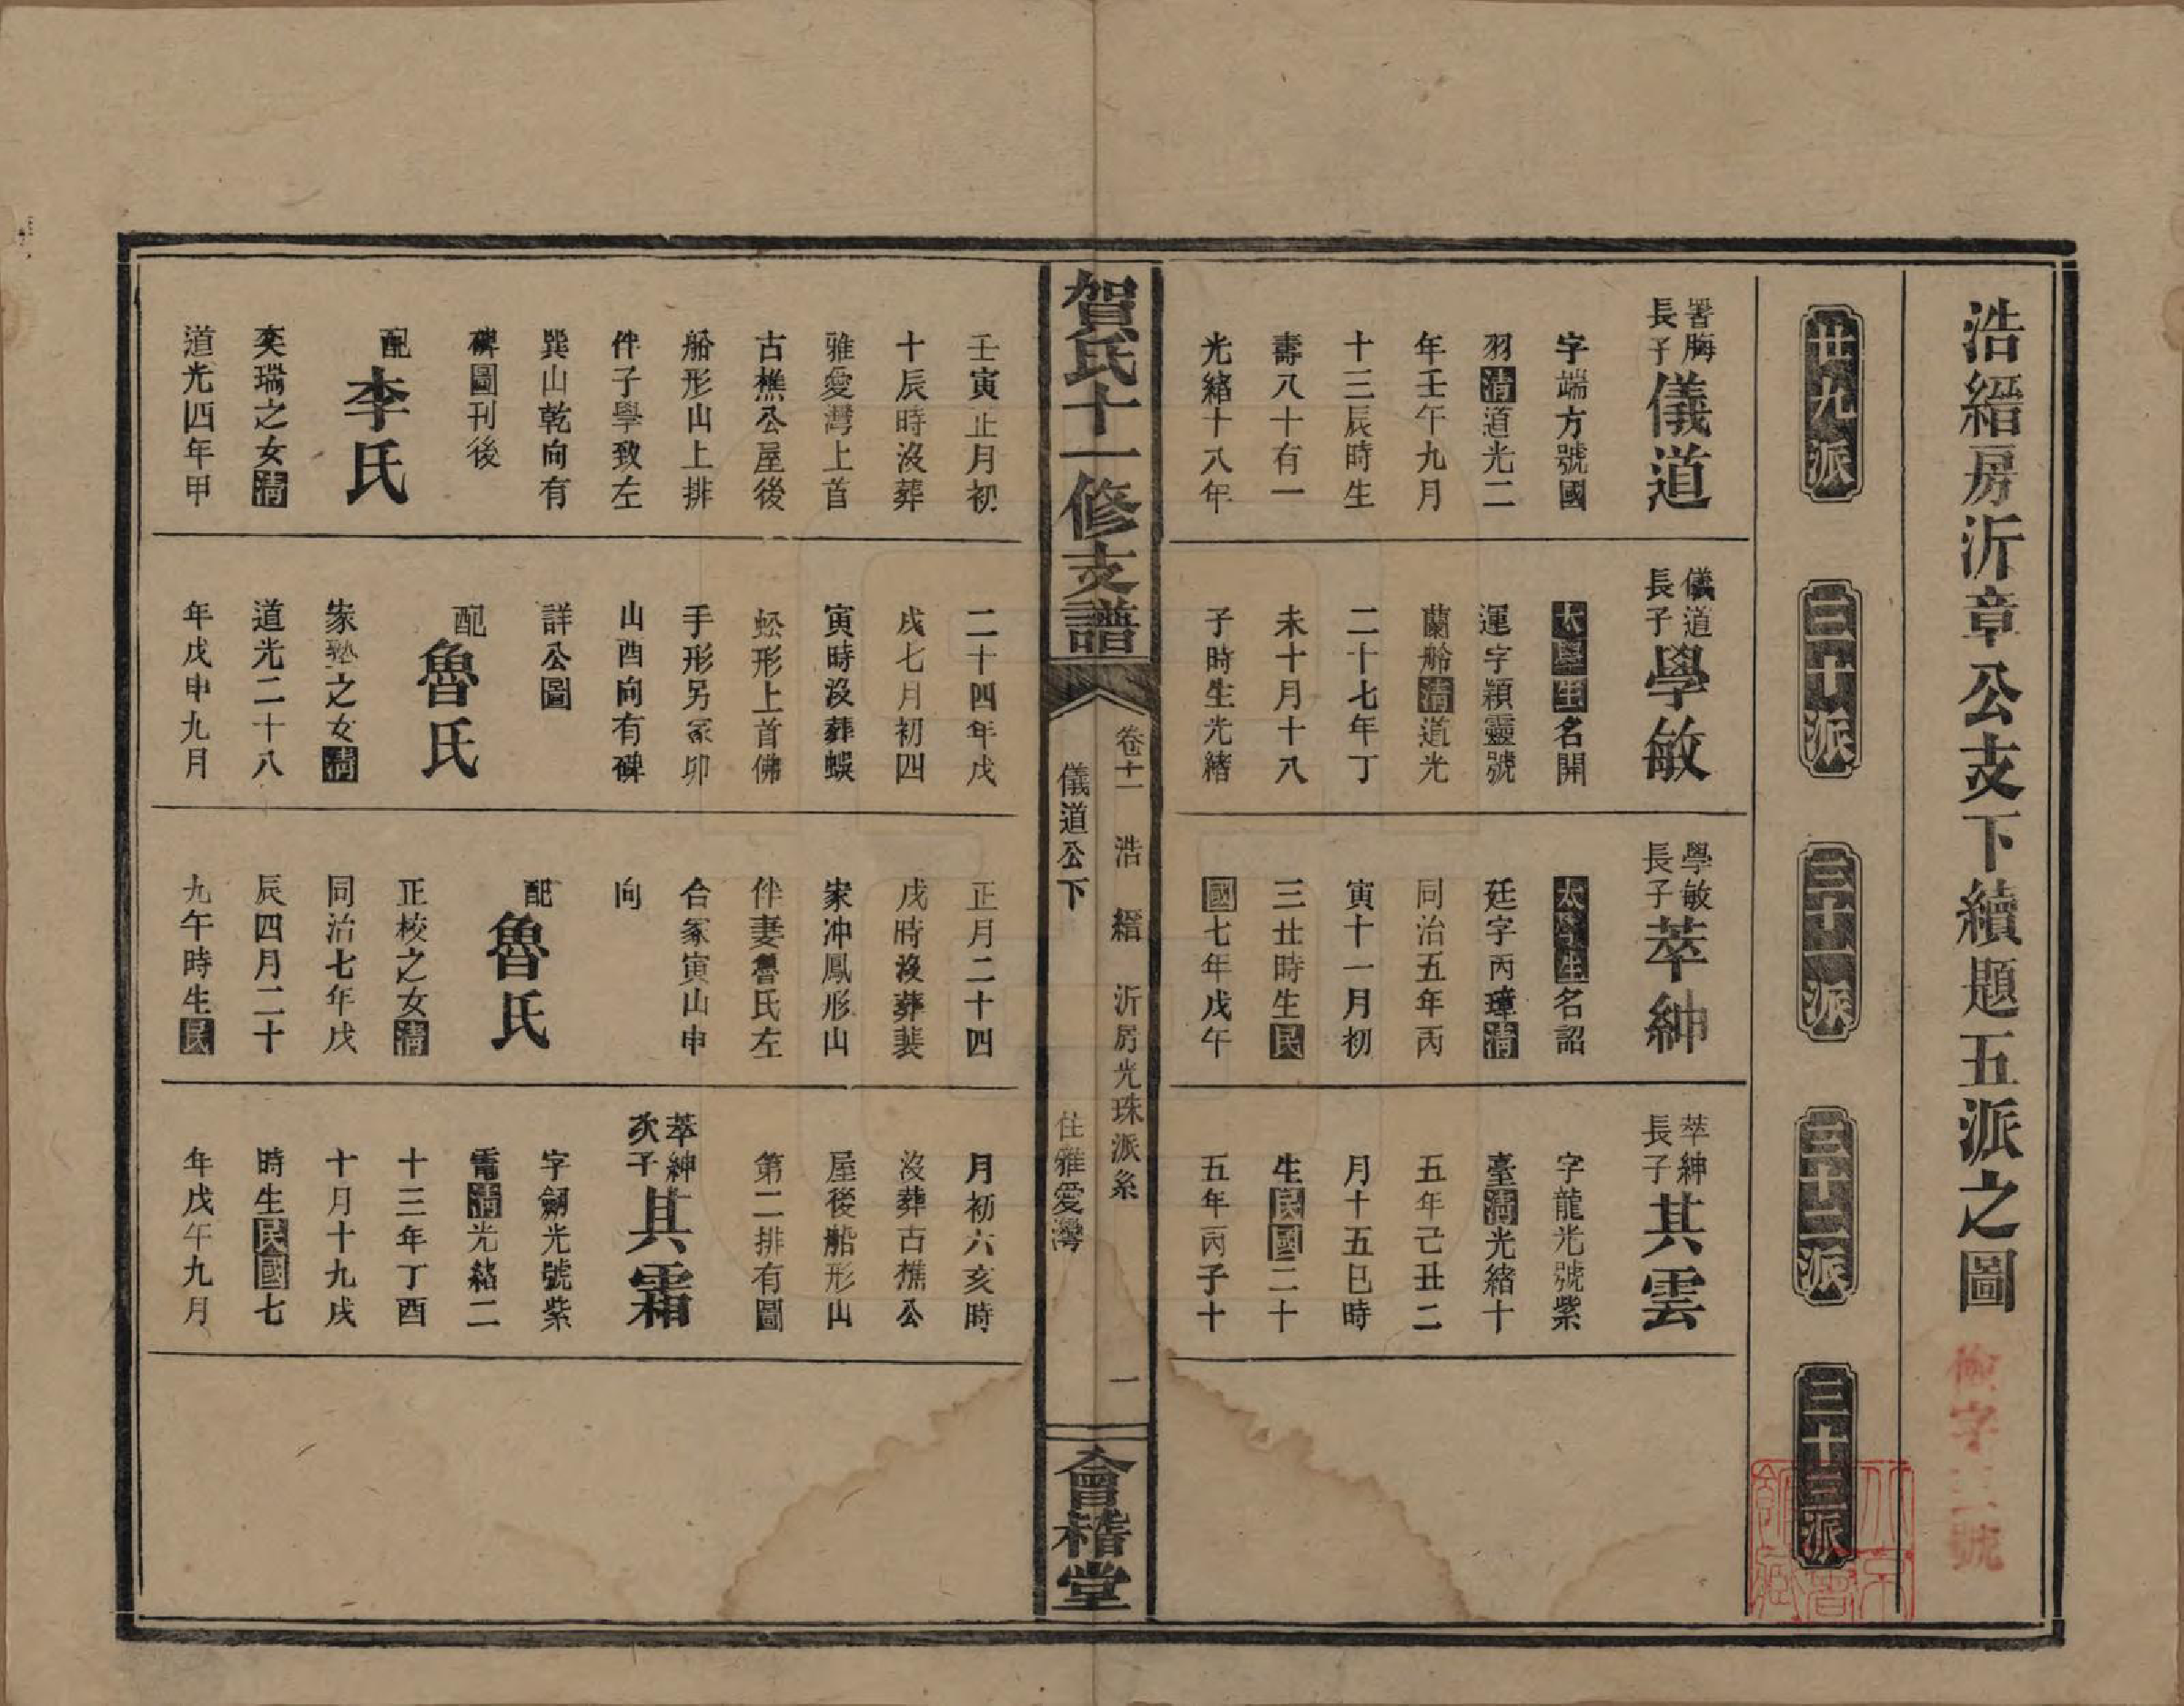 浩縉房沂章公支下續題五派之圖
字號
廿九派
三十派
三十一派
三十二派
三十三派
署脢長子儀道
字端方號國
羽清道光二
年壬午九月
十三辰時生
壽八十有一
光緒十八年
儀道長子學敏
太學生名開
運字穎靈號
蘭舲清道光
二十七年丁
未十月十八
子時生光緒
學敏長子萃紳
太學生名詔
廷字丙璋清
同治五年丙
寅十一月初
三丑時生民
國七年戊午
萃紳長子其雲
字龍光號紫
臺清光緒十
五年己丑二
月十五巳時
生民國二十
五年丙子十
賀氏十一修支譜
卷十一 浩縉 沂房光珠派系 一
儀道公下 住雅愛灣
會楷堂
壬寅正月初
十辰時沒葬
雅愛灣上首
古樵公屋後
船形山上排
伴子學致左
巽山乾向有
碑圖刊後
配李氏
奕瑞之女清
道光四年甲
二十四年戊
戌七月初四
寅時沒葬蜈
蚣形上首佛
手形另冢卯
山酉向有碑
詳公圖
配魯氏
家塾之女清
道光二十八
年戊申九月
正月二十四
戌時沒葬裴
家冲鳳形山
伴妻魯氏左
合冢寅山申
向
配魯氏
正校之女清
同治七年戊
辰四月二十
九午時生民
月初六亥時
沒葬古樵公
屋後船形山
第二排有圖
萃紳次子其霜
字劍光號紫
電清光緒二
十三年丁酉
十月十九戌
時生民國七
年戊午九月